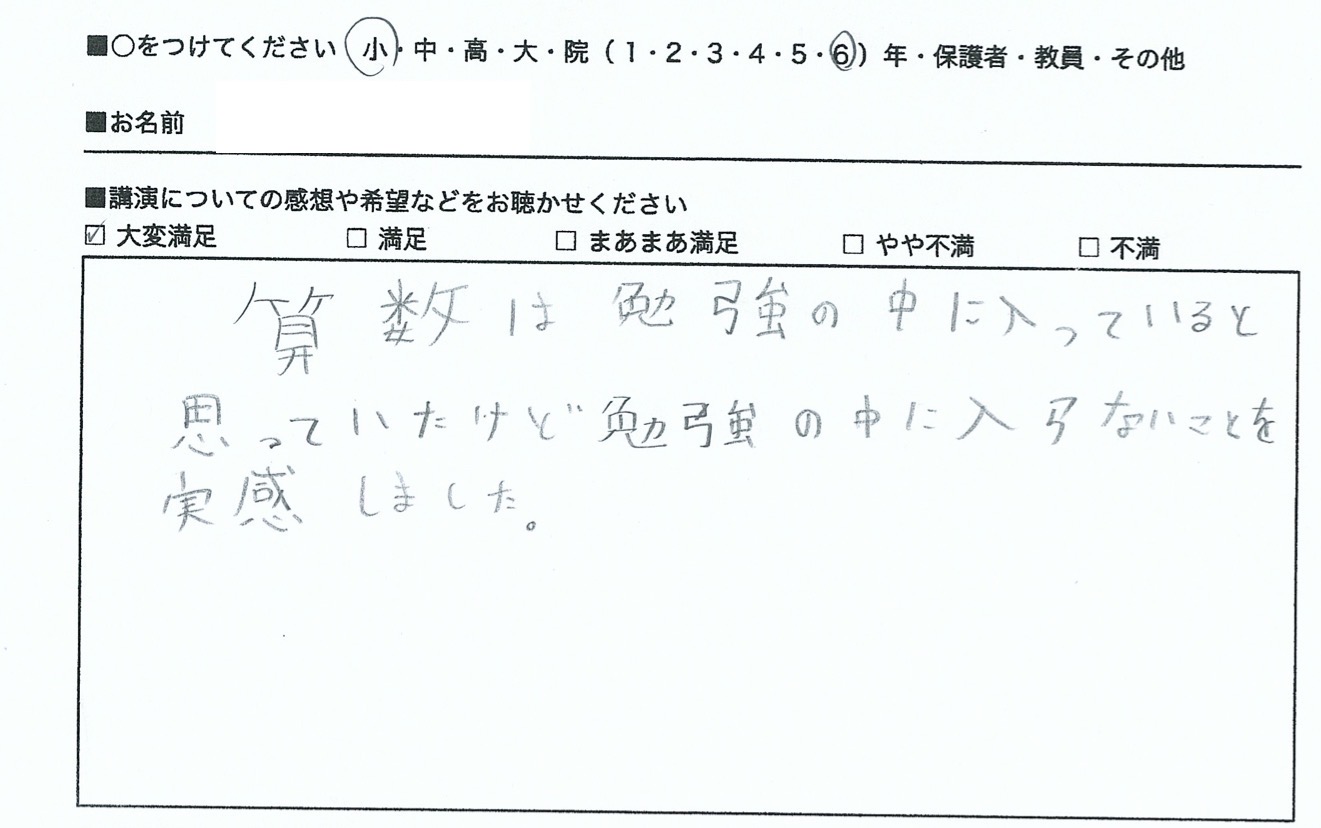 ■○をつけてください 小・中・高・大・院(1・2・3・4・5・6)年・保護者・教員・その他
■お名前
■講演についての感想や希望などをお聴かせください
☑ 大変満足 □ 満足 □ まあまあ満足 □ やや不満 □ 不満
算数は勉強の中に入っていると
思っていたけど勉強の中に入らないことを
実感しました。